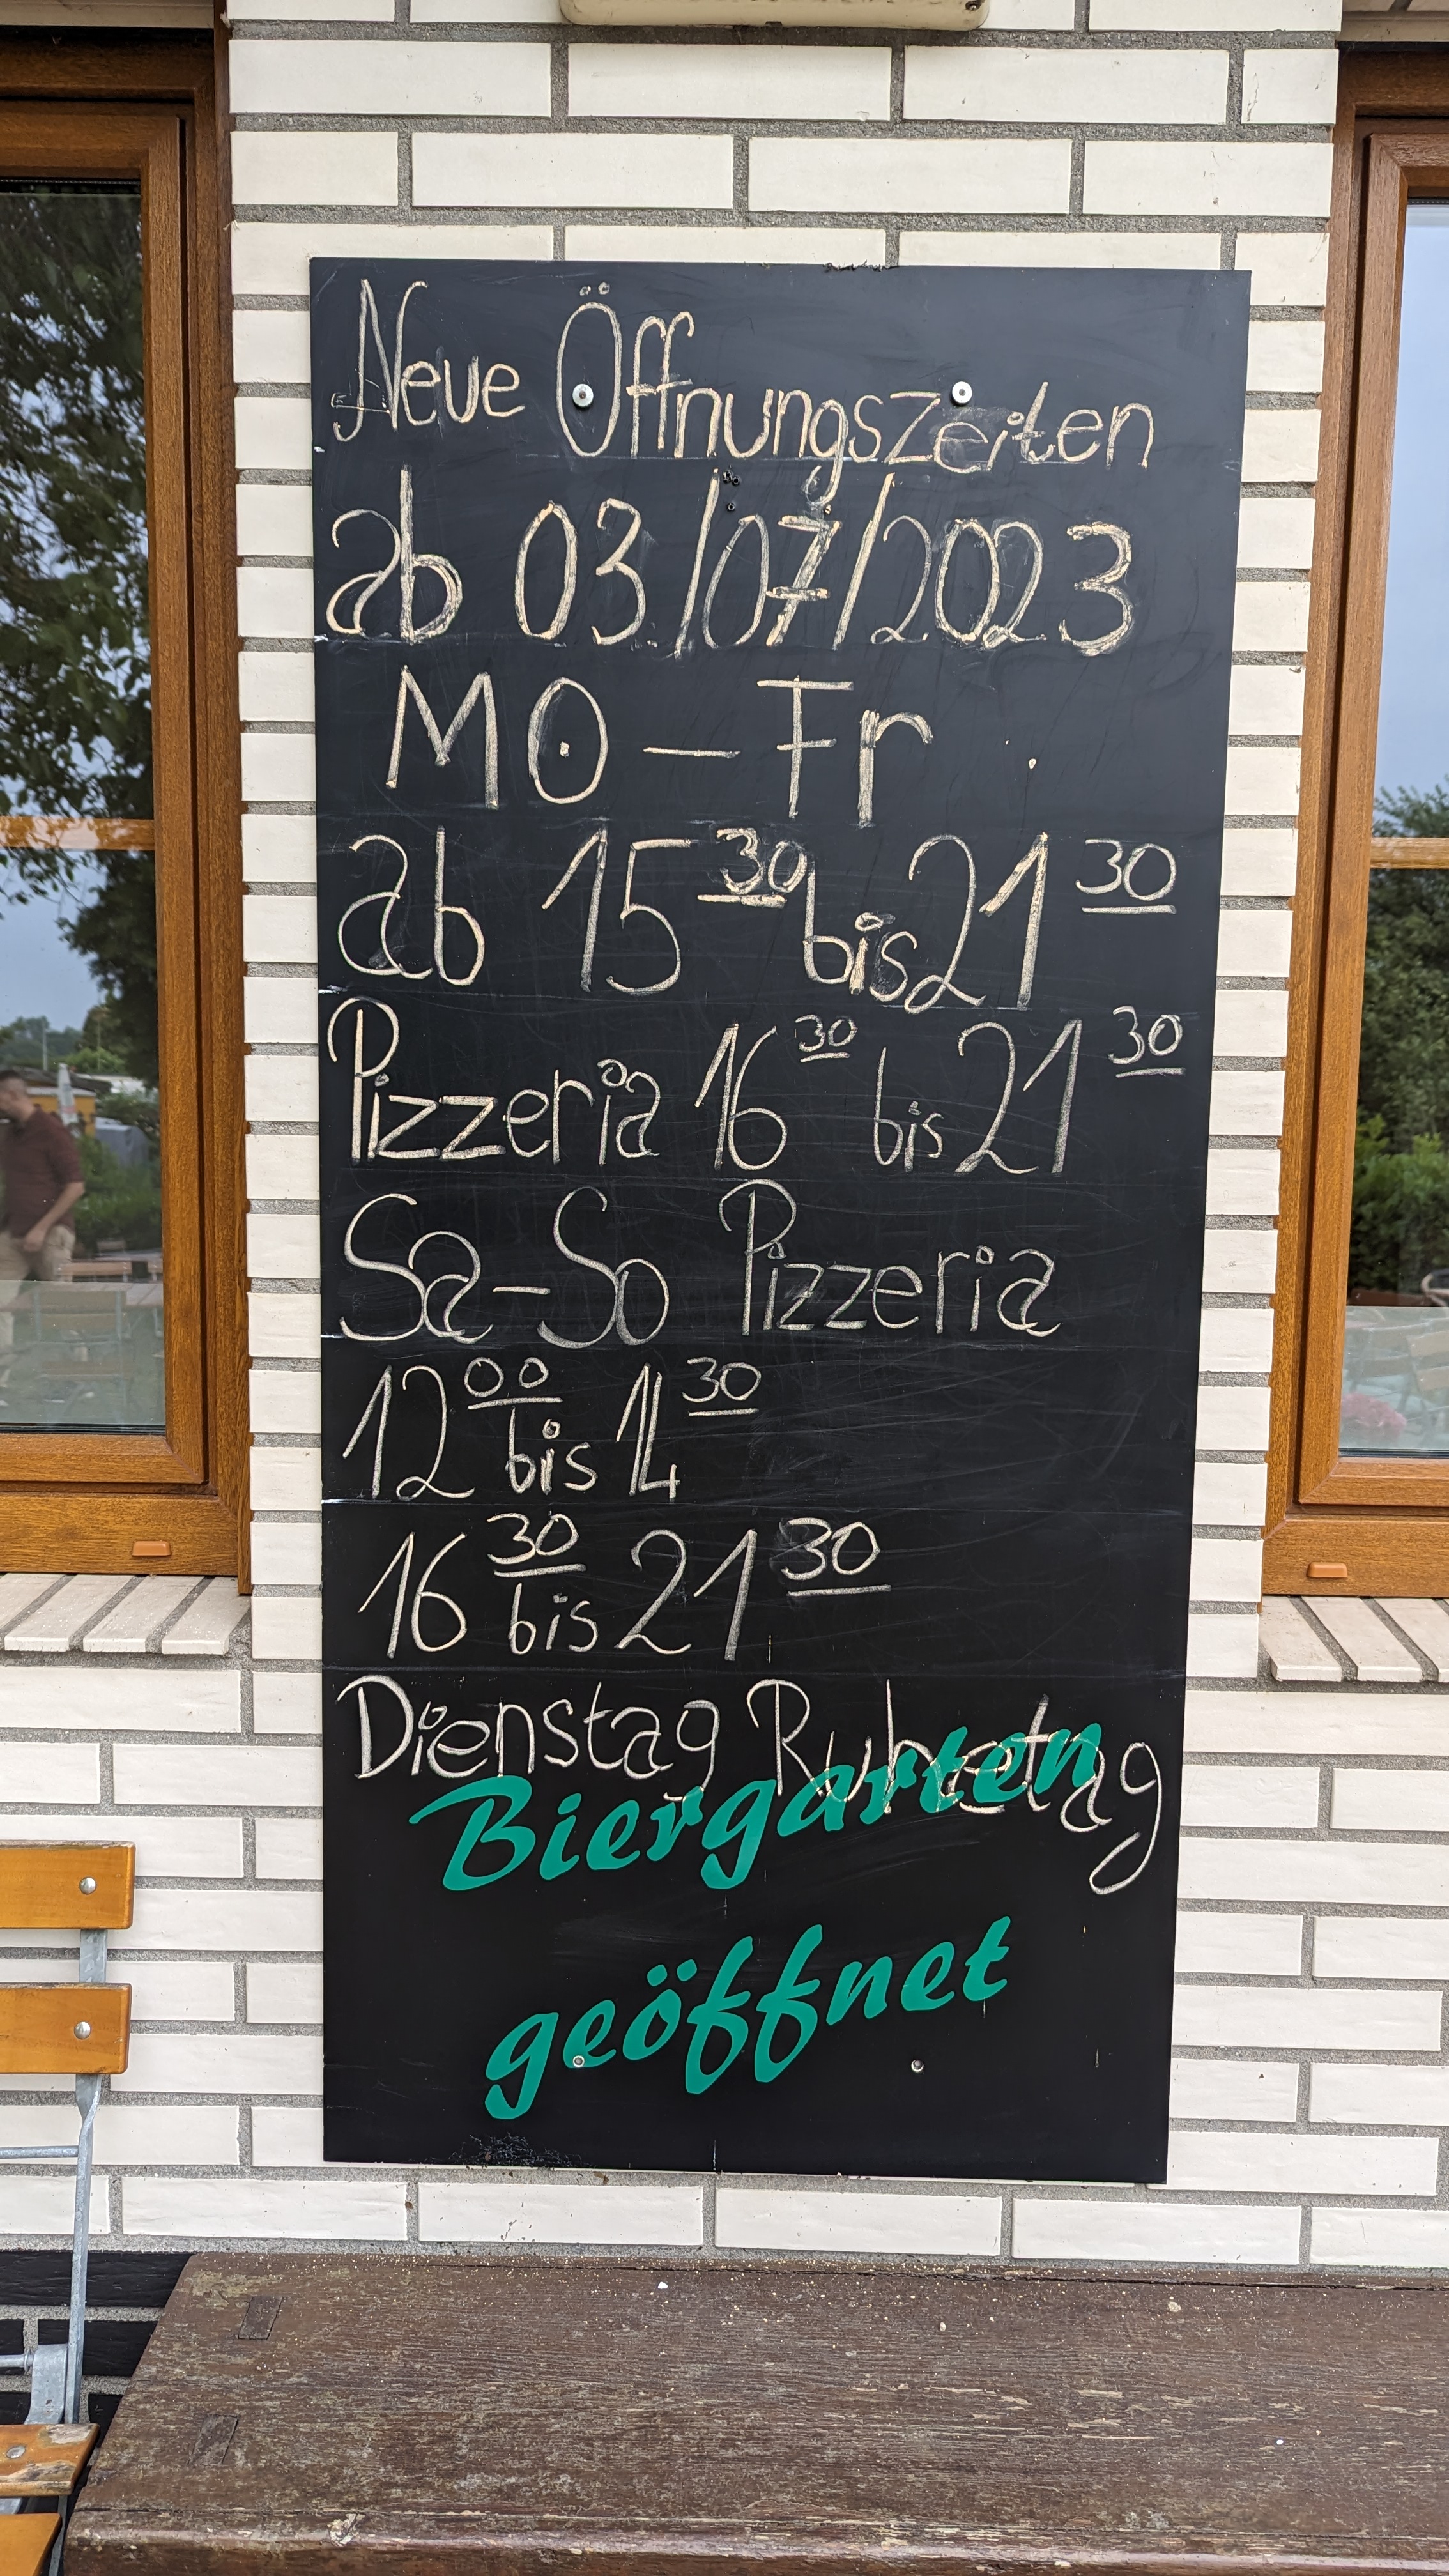 Neue Öffnungszeiten
ab 03/07/2023
MO – Fr.
ab 15 30 bis 21 30
Pizzeria 16 30 bis 21 30
Sa – So Pizzeria
12 00 bis 14 30
16 30 bis 21 30
Dienstag Ruhetag
Biergarten
geöffnet